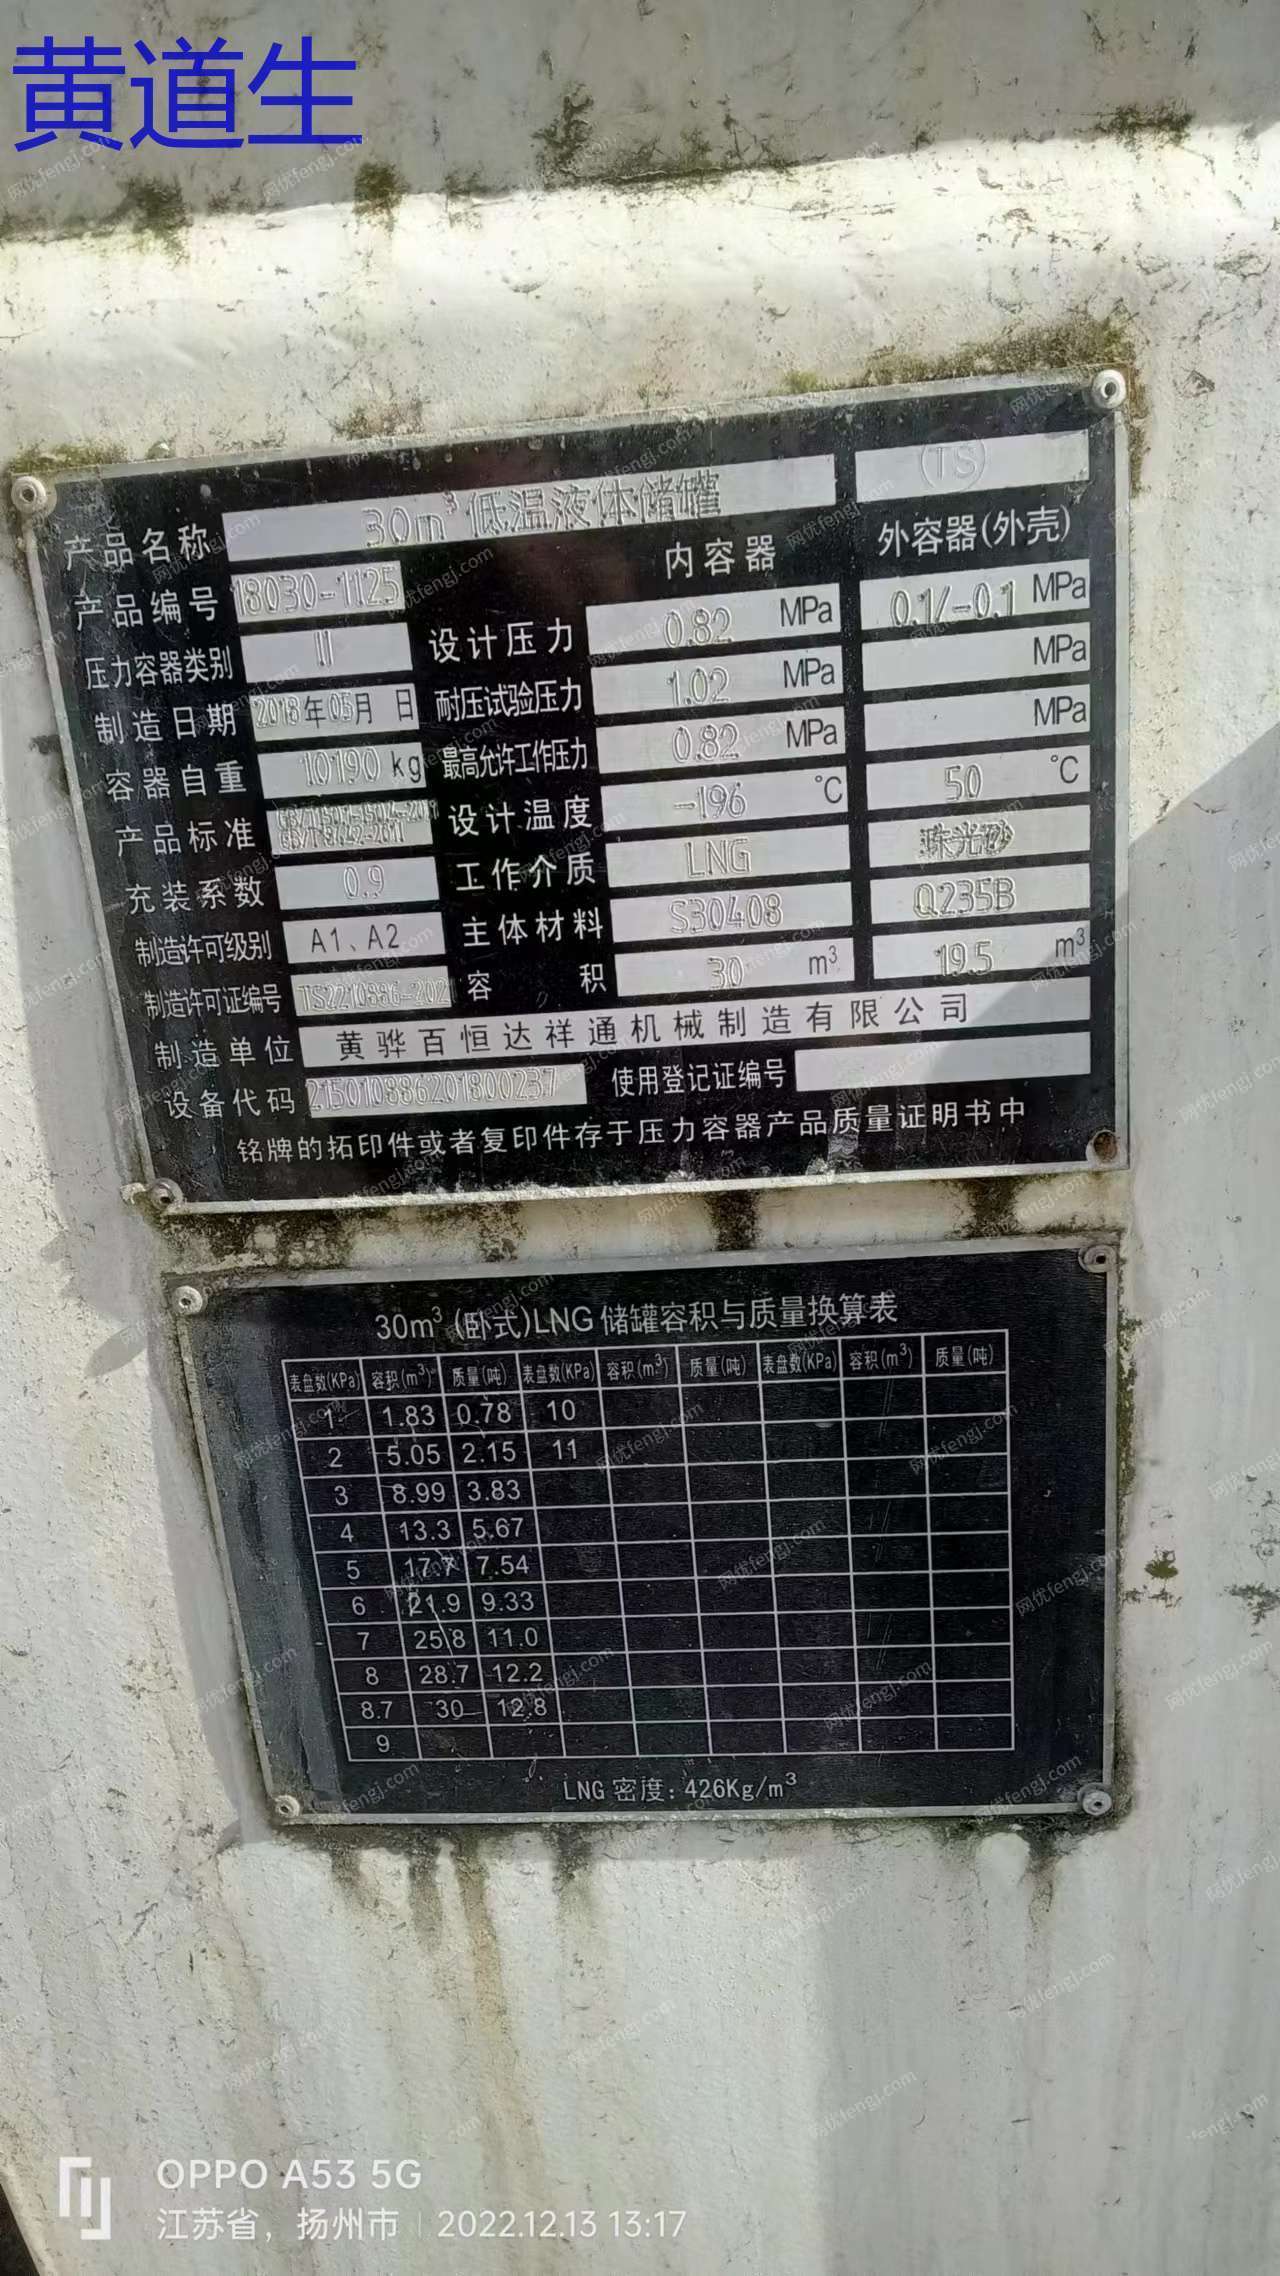 黄道生
产品名称 30m³低温液体储罐 TS
内容器 外容器(外壳)
产品编号 18030-1125
设计压力 0.82 MPa 0.1/-0.1 MPa
压力容器类别 II
耐压试验压力 1.02 MPa MPa
制造日期 2018年05月 日
最高允许工作压力 0.82 MPa MPa
容器自重 10190 kg
设计温度 -196 ℃ 50 ℃
产品标准
工作介质 LNG 珠光砂
充装系数 0.9
主体材料 S30408 Q235B
制造许可级别 A1、A2
容积 30 m³ 19.5 m³
制造许可证编号 TS2210886-2021
制造单位 黄骅百恒达祥通机械制造有限公司
设备代码 215010886201800237 使用登记证编号
铭牌的拓印件或者复印件存于压力容器产品质量证明书中
30m³(卧式)LNG储罐容积与质量换算表
表盘数(KPa) 容积(m³) 质量(吨) 表盘数(KPa) 容积(m³) 质量(吨) 表盘数(KPa) 容积(m³) 质量(吨)
1 1.83 0.78 10
2 5.05 2.15 11
3 8.99 3.83
4 13.3 5.67
5 17.7 7.54
6 21.9 9.33
7 25.8 11.0
8 28.7 12.2
8.7 30 12.8
9
LNG密度：426Kg/m³
OPPO A53 5G
江苏省，扬州市 | 2022.12.13 13:17
网优fengj.com